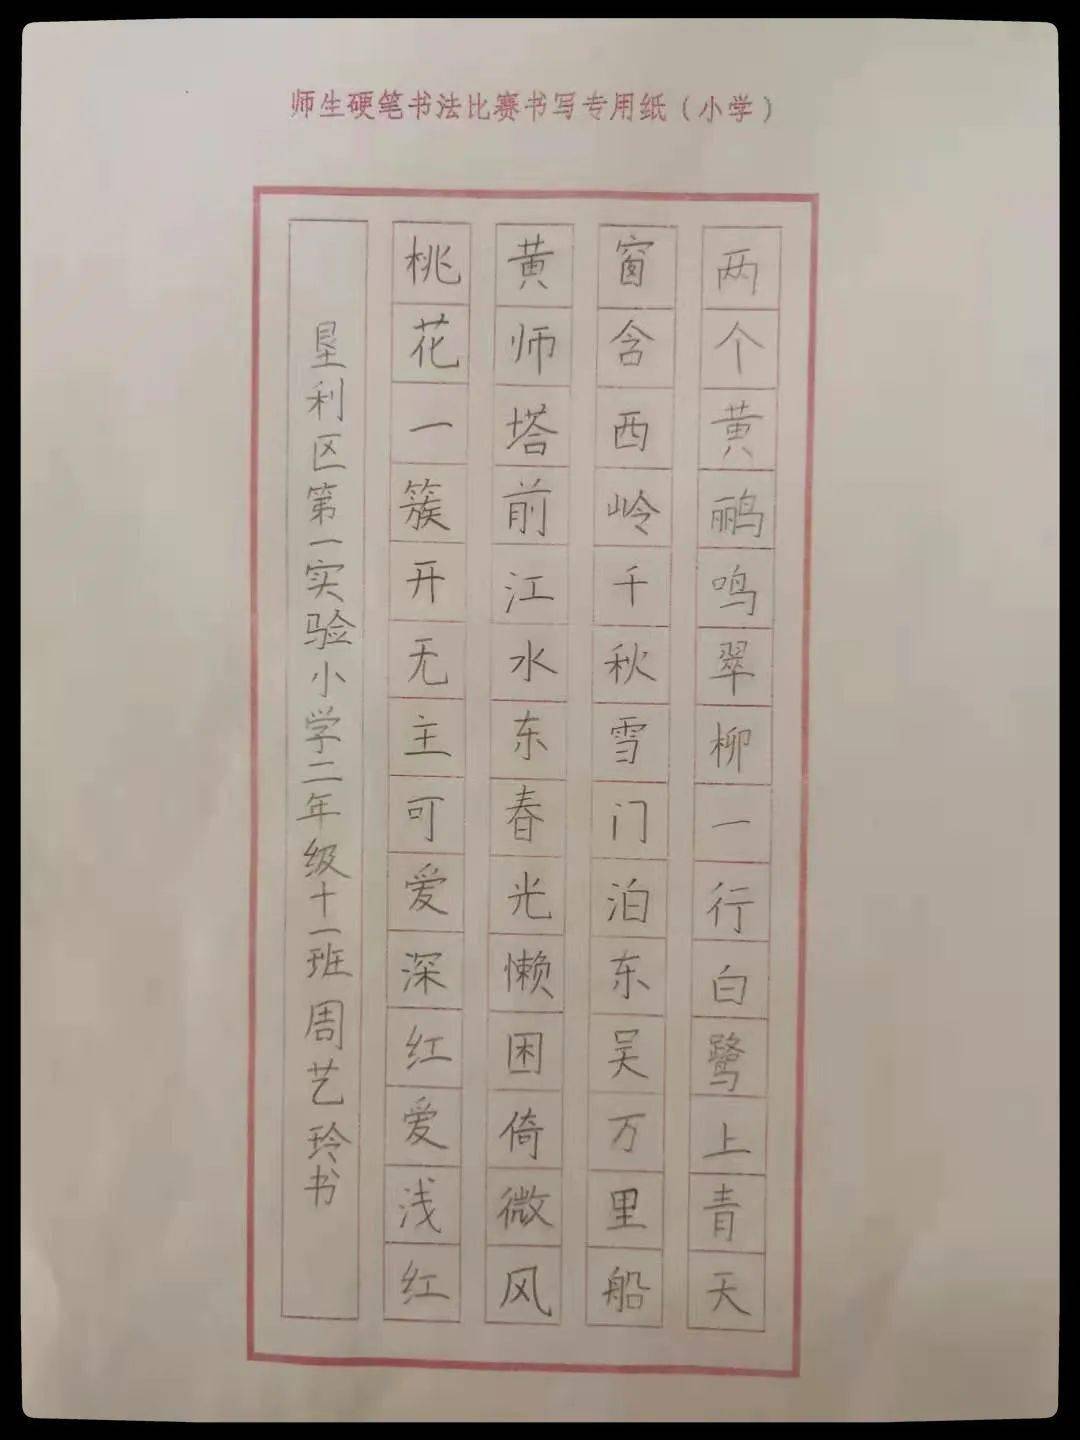 师生硬笔书法比赛书写专用纸（小学）
两个黄鹂鸣翠柳一行白鹭上青天
窗含西岭千秋雪门泊东吴万里船
黄师塔前江水东春光懒困倚微风
桃花一簇开无主可爱深红爱浅红
垦利区第一实验小学二年级十一班周艺玲书